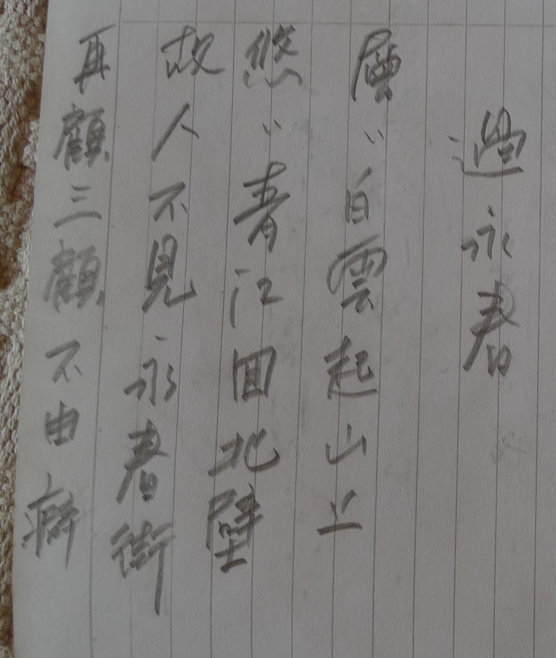 過永春
層〃白雲起山上
悠〃青江回北壁
故人不見永春街
再顧三顧不由癖